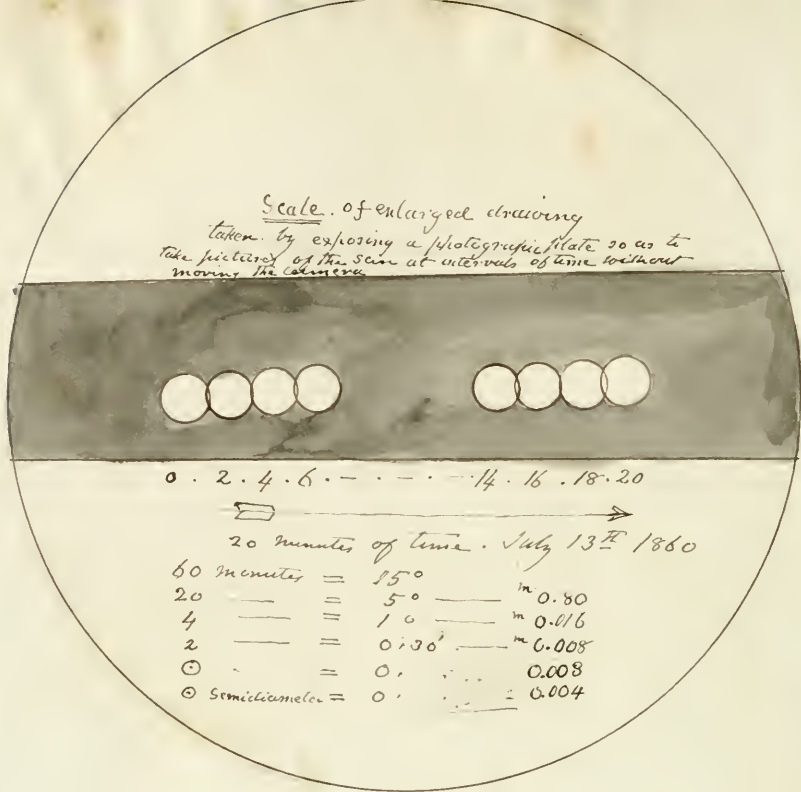 Scale. of enlarged drawing
taken by exposing a photograpic plate so as to
take pictures of the sun at intervals of time without
moving the camera
0 . 2 . 4 . 6 . - . - . - . - 14 . 16 . 18 . 20
20 minutes of time . July 13th 1860
60 minutes = 15°
20 — = 5° — m 0.80
4 — = 1° — m 0.016
2 — = 0°:30' — m 0.008
☉ . = 0. . .. 0.008
☉ Semidiameter = 0. . .. = 0.004